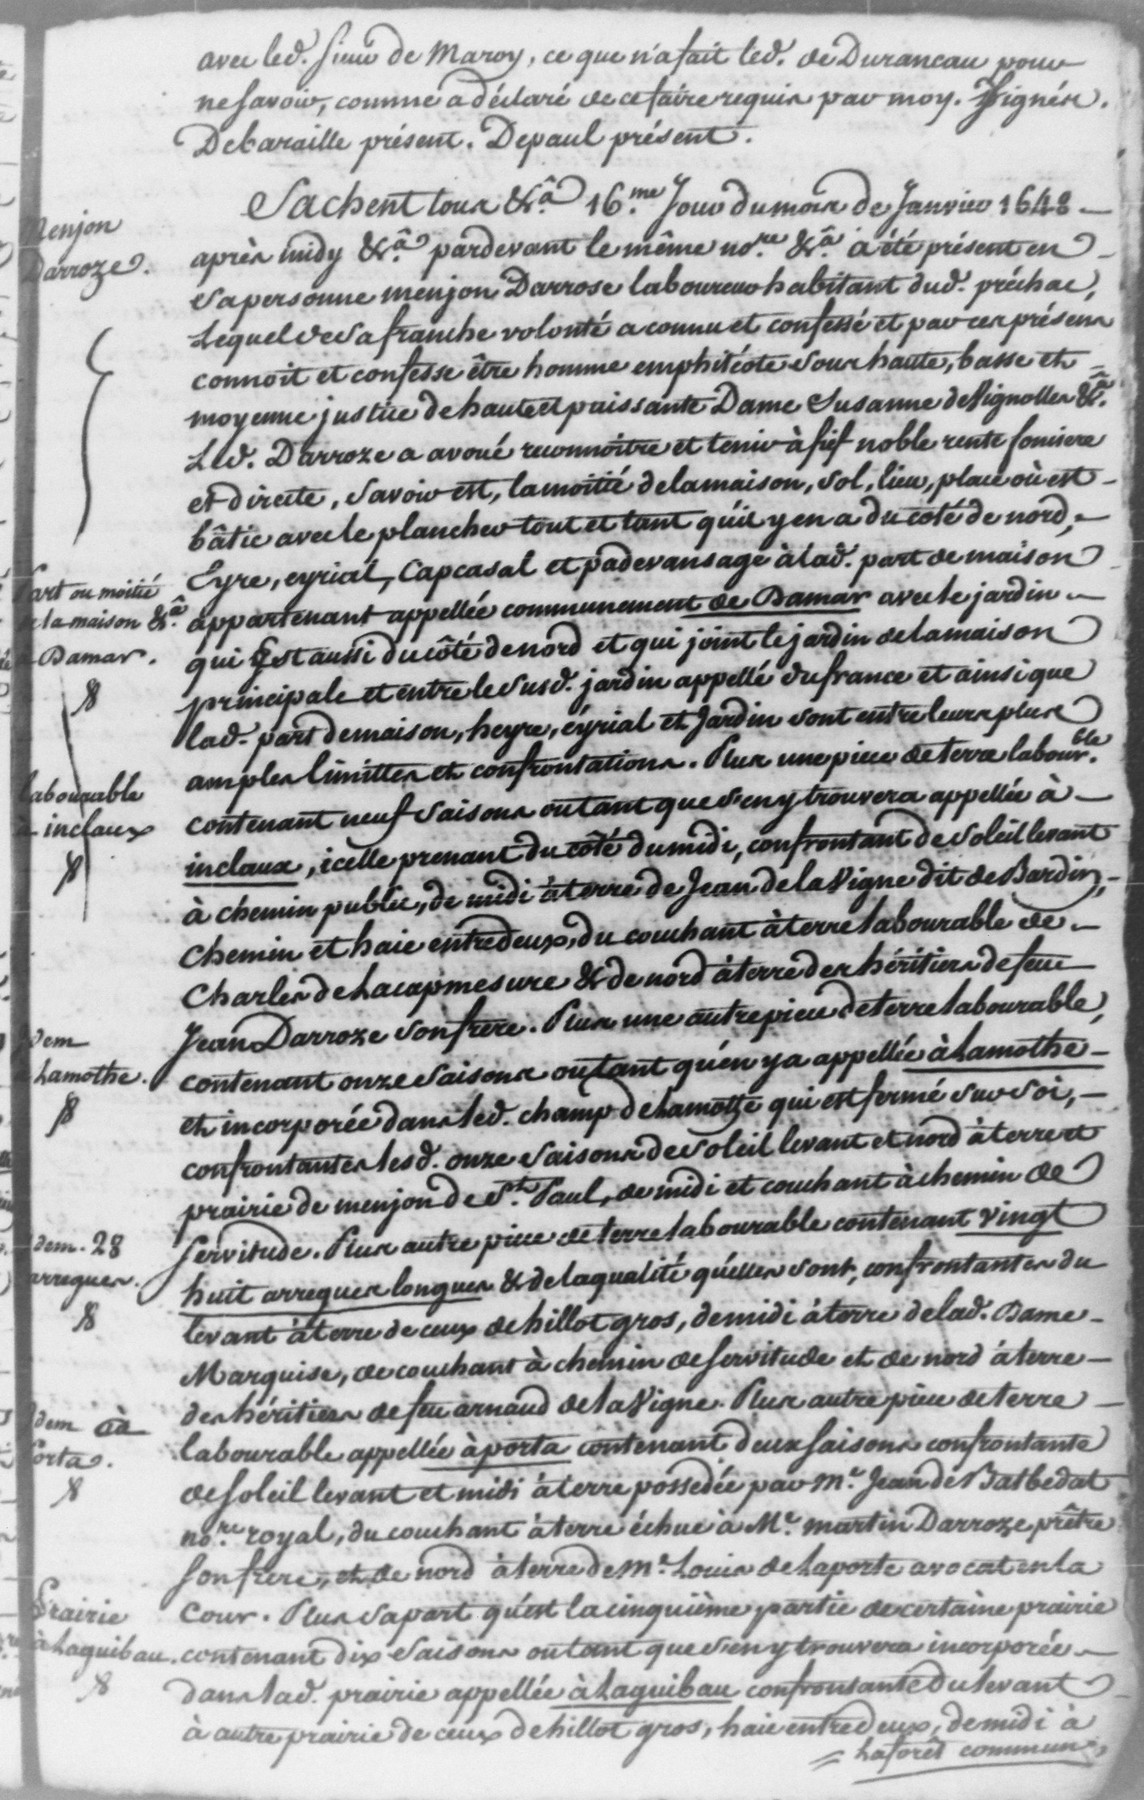 avec led. sieur de Maroy, ce que n'a fait led. de Duranceau pour
ne savoir, comme a déclaré de ce faire requis par moy. Signés.
Debaraille présent. Depaul présent.
Menjon
Darroze.
Sachent tous &.ª 16.me Jour du mois de Janvier 1648 —
après midy &.ª pardevant le même no.re &.ª a été présent en
sa personne menjon Darrose laboureur habitant dud. préchac,
Lequel de sa franche volonté a connu et confessé et par ces présens
connoit et confesse être homme emphitéote sous haute, basse et
moyenne justice de haute et puissante Dame Susanne de Vignolles &.ª
Led. Darroze a avoué reconnoitre et tenir à fief noble rente fonciere
et directe, savoir est, la moitié de la maison, sol, lieu, place où est
bâtie avec le plancher tout et tant qu'il y en a du coté de nord,
Part ou moitié
de la maison &.ª
à Damar.
Eyre, eyrial, Capcasal et padevansage à lad. part de maison
appartenant appellée communement de Damar avec le jardin
qui Est aussi du côté de nord et qui joint le jardin de la maison
principale et entre le susd. jardin appellé du france et ainsi que
lad. part de maison, heyre, éyrial et Jardin sont entre leurs plus
amples limittes et confrontations. Plus une piece de terre labour.ble
labourable
à inclaux
contenant neuf saisons ou tant que s'en y trouvera appellée à
inclaux, icelle prenant du côté du midi, confrontant de soleil levant
à chemin public, de midi à terre de Jean de la Vigne dit de Bardin,
Chemin et haie entredeux, du couchant à terre labourable de
Charles de Lacapmesure & de nord à terre des héritiers de feu
Jean Darroze son frere. Plus une autre piece de terre labourable,
idem
à Lamothe.
contenant onze saisons ou tant qu'en y a appellée à Lamothe
et incorporée dans led. champ de Lamothe qui est fermé sur soi,
confrontantes lesd. onze saisons de soleil levant et nord à terre et
prairie de menjon de St. Paul, de midi et couchant à chemin de
idem. 28
arregues.
servitude. Plus autre piece de terre labourable contenant vingt
huit arregues longues & de la qualité qu'elles sont, confrontantes du
levant à terre de ceux de hillot gros, de midi à terre de lad. Dame
Marquise, de couchant à chemin de servitude et de nord à terre
des héritiers de feu arnaud de la Vigne. Plus autre piece de terre
idem à
Porta.
labourable appellée à porta contenant deux saisons confrontante
de soleil levant et midi à terre possedée par M.e Jean de Batbedat
no.re royal, du couchant à terre échue à M.e martin Darroze prêtre
son frere, et de nord à terre de M.e Louis de Laporte avocat en la
Prairie
à Laguibau.
Cour. Plus sa part qu'est la cinquième partie de certaine prairie
contenant dix saisons ou tant que s'en y trouvera incorporée
dans lad. prairie appellée à Laguibau confrontante du levant
à autre prairie de ceux de hillot gros, haie entredeux, de midi à
la forêt commun